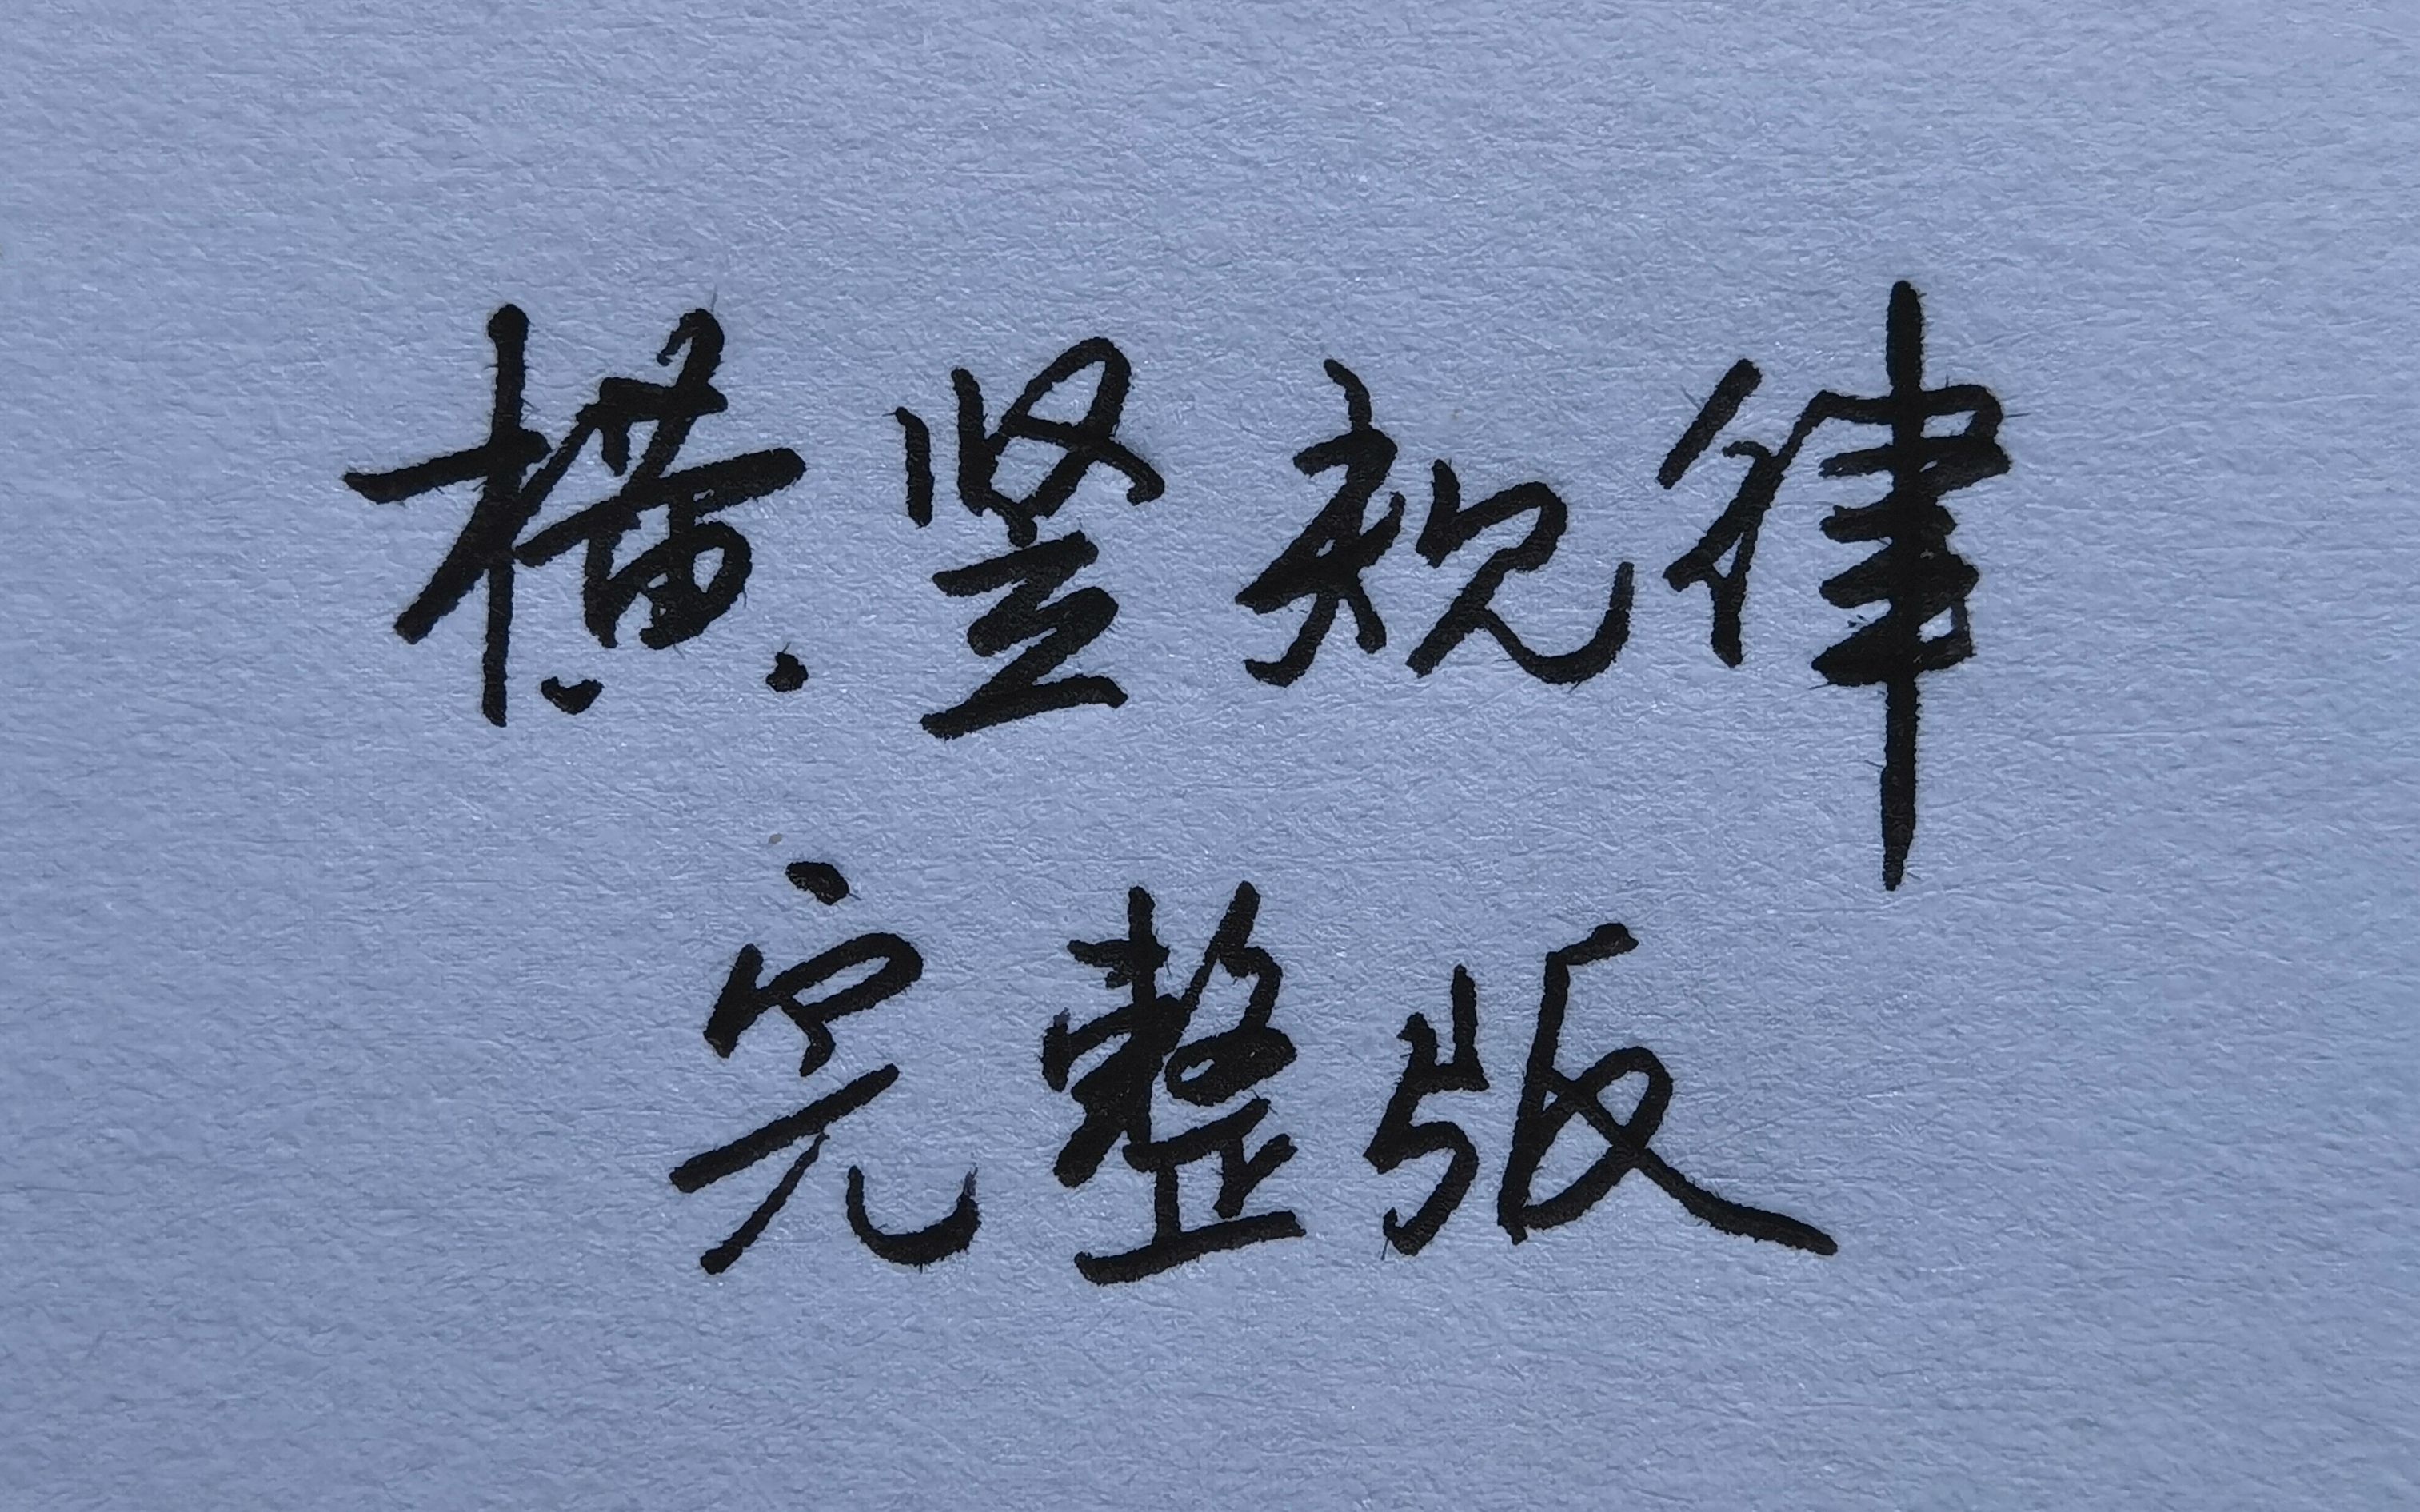 横竖规律
完整版